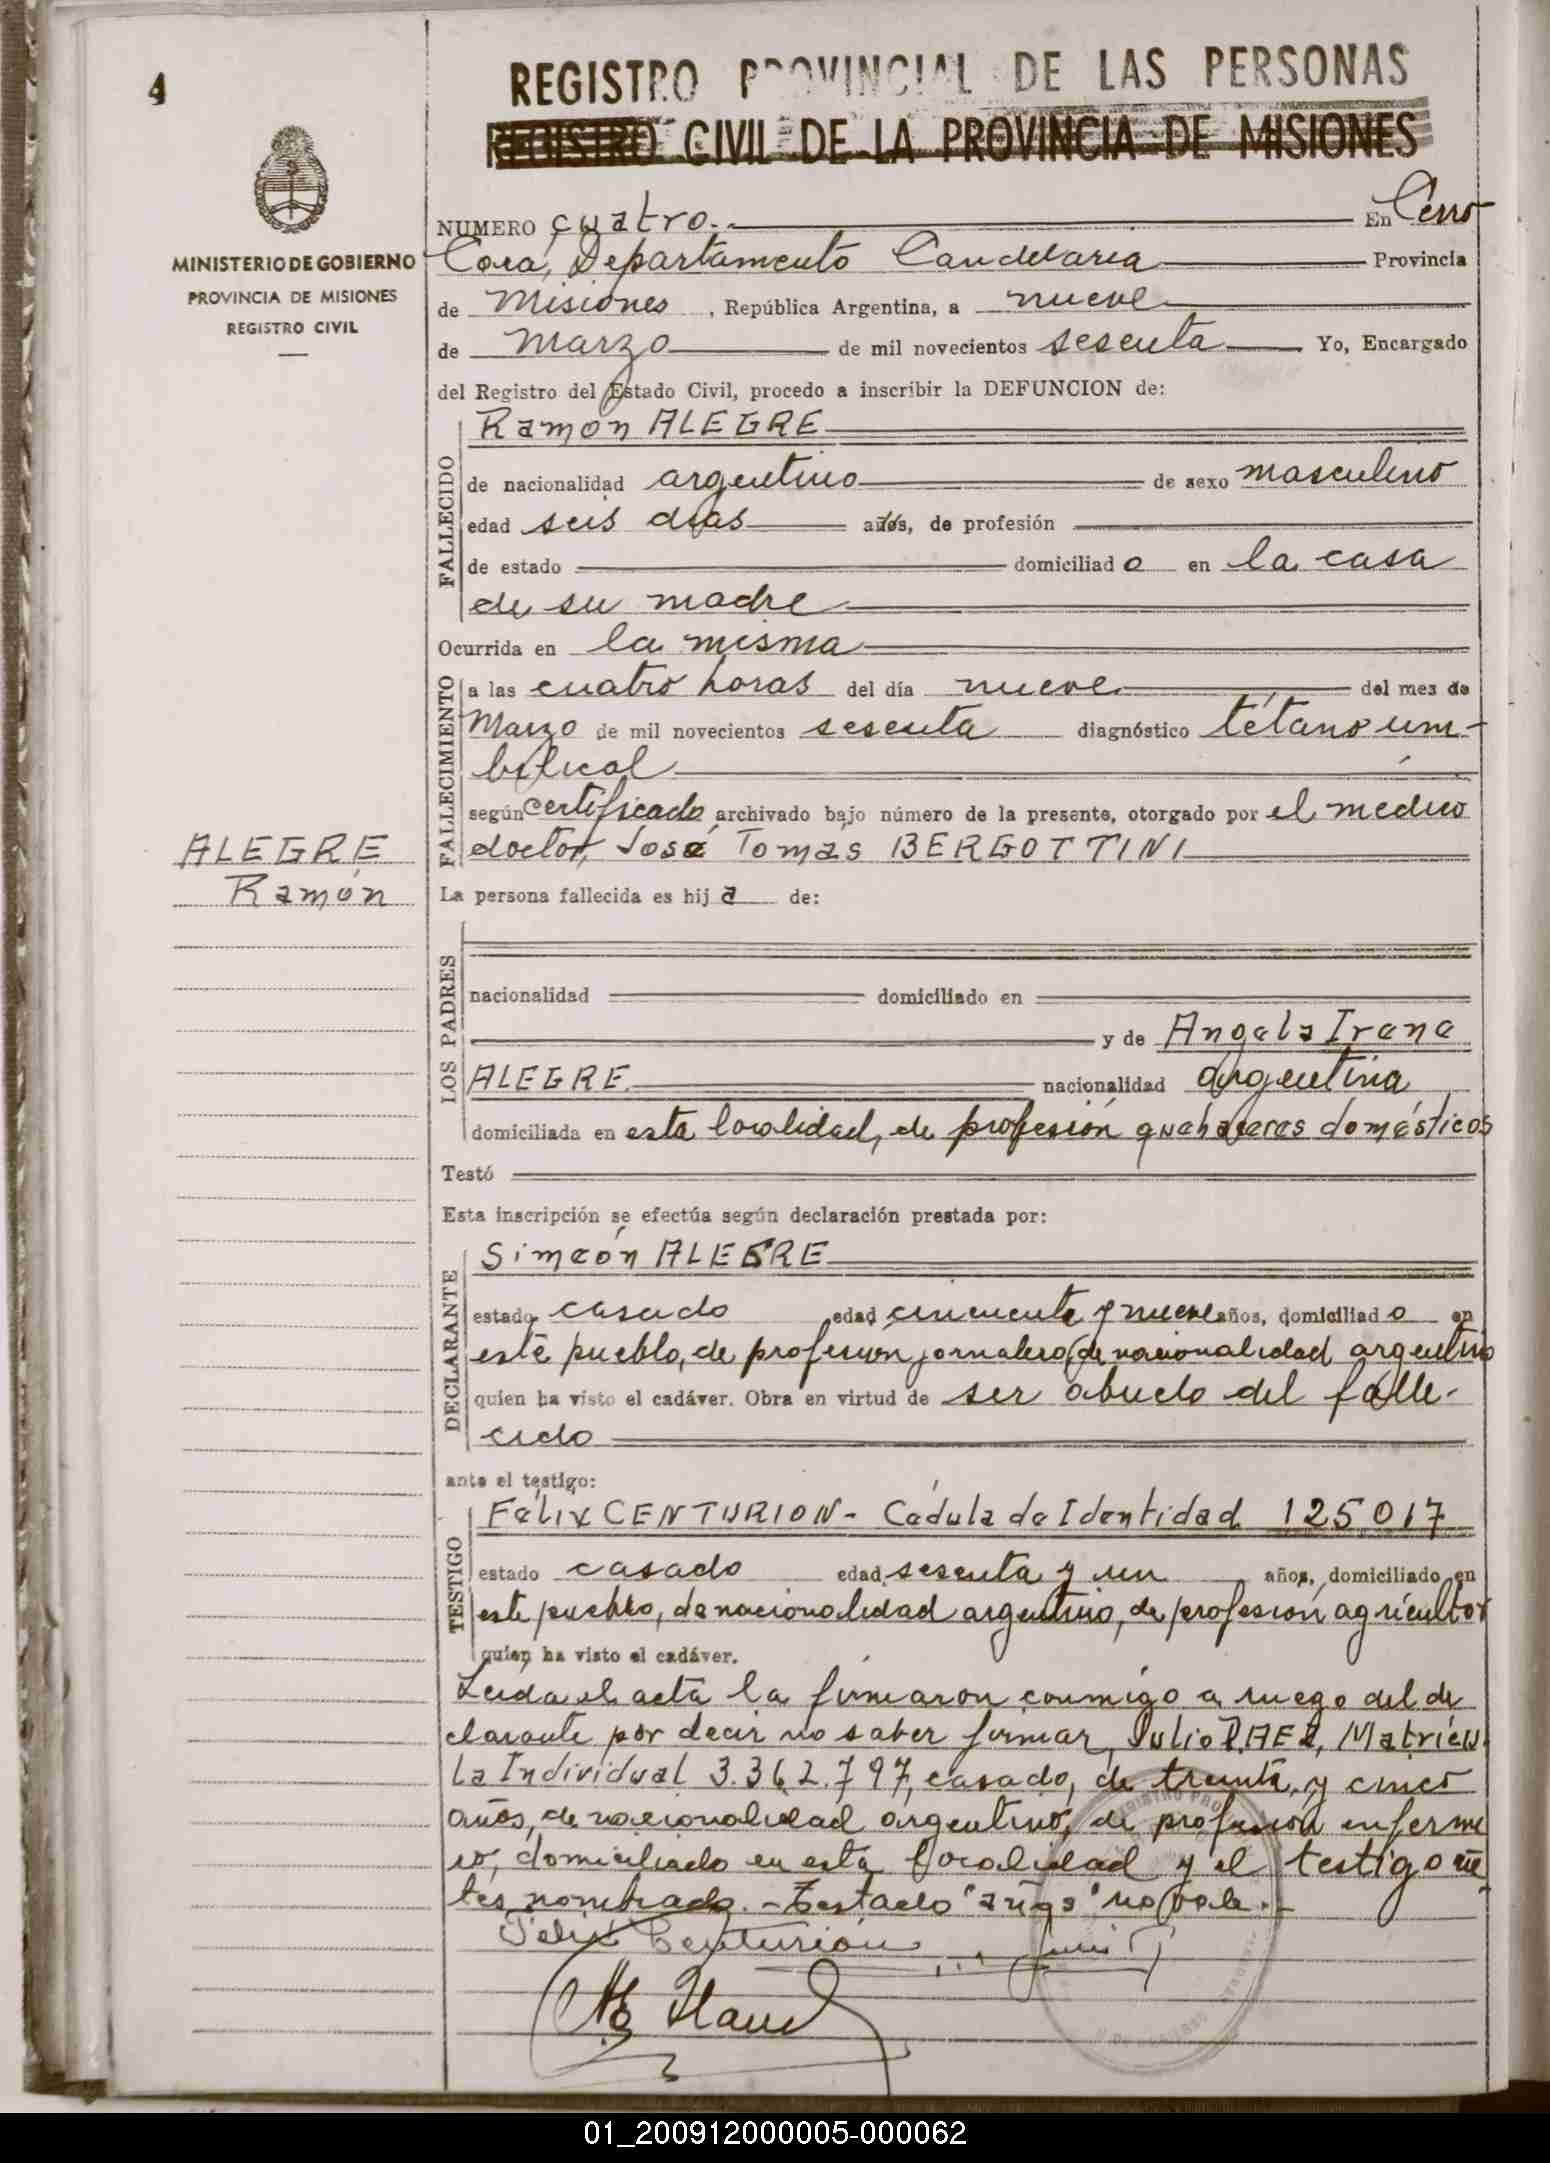 4
REGISTRO PROVINCIAL DE LAS PERSONAS
REGISTRO CIVIL DE LA PROVINCIA DE MISIONES
MINISTERIO DE GOBIERNO
PROVINCIA DE MISIONES
REGISTRO CIVIL
NUMERO cuatro.- En Cerro
Corá, Departamento Candelaria Provincia
de Misiones, República Argentina, a nueve
de Marzo de mil novecientos sesenta Yo, Encargado
del Registro del Estado Civil, procedo a inscribir la DEFUNCION de:
Ramón ALEGRE
FALLECIDO
de nacionalidad argentino de sexo masculino
edad seis días años, de profesión
de estado domiciliado en la casa
de su madre
Ocurrida en la misma
FALLECIMIENTO
a las cuatro horas del día nueve del mes de
Marzo de mil novecientos sesenta diagnóstico tétano um-
bilical
según certificado archivado bajo número de la presente, otorgado por el médico
doctor, José Tomás BERGOTTINI
ALEGRE
Ramón
La persona fallecida es hija de:
LOS PADRES
nacionalidad domiciliado en
y de Angela Irene
ALEGRE nacionalidad argentina
domiciliada en esta localidad, de profesión quehaceres domésticos
Testó
Esta inscripción se efectúa según declaración prestada por:
DECLARANTE
Simeón ALEGRE
estado casado edad cincuenta y nueve años, domiciliado en
este pueblo, de profesión jornalero, de nacionalidad argentino
quien ha visto el cadáver. Obra en virtud de ser abuelo del falle-
cido
ante el testigo:
TESTIGO
Félix CENTURION - Cédula de Identidad 125017
estado casado edad sesenta y un años, domiciliado en
este pueblo, de nacionalidad argentino, de profesión agricultor
quien ha visto el cadáver.
Leída el acta la firmaron conmigo a ruego del de
clarante por decir no saber firmar, Julio PAEZ, Matrícu
la Individual 3.362.797, casado, de treinta y cinco
años, de nacionalidad argentino, de profesión enferme
ro, domiciliado en esta localidad y el testigo an
tes nombrado. - Testado "años" no vale.-
Félix Centurión
01_200912000005-000062